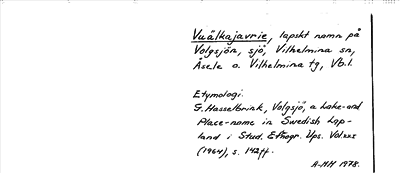 Vuälkajavrie, lapskt namn på
Volgsjön, sjö, Vilhelmina sn,
Åsele o. Vilhelmina tg, Vb.l.
Etymologi.
G. Hasselbrink, Volgsjö, a Lake-and
Place-name in Swedish Lap-
land i Stud. Ethnogr. Ups. Vol XXI
(1964), s. 142ff.
A-MH 1978.